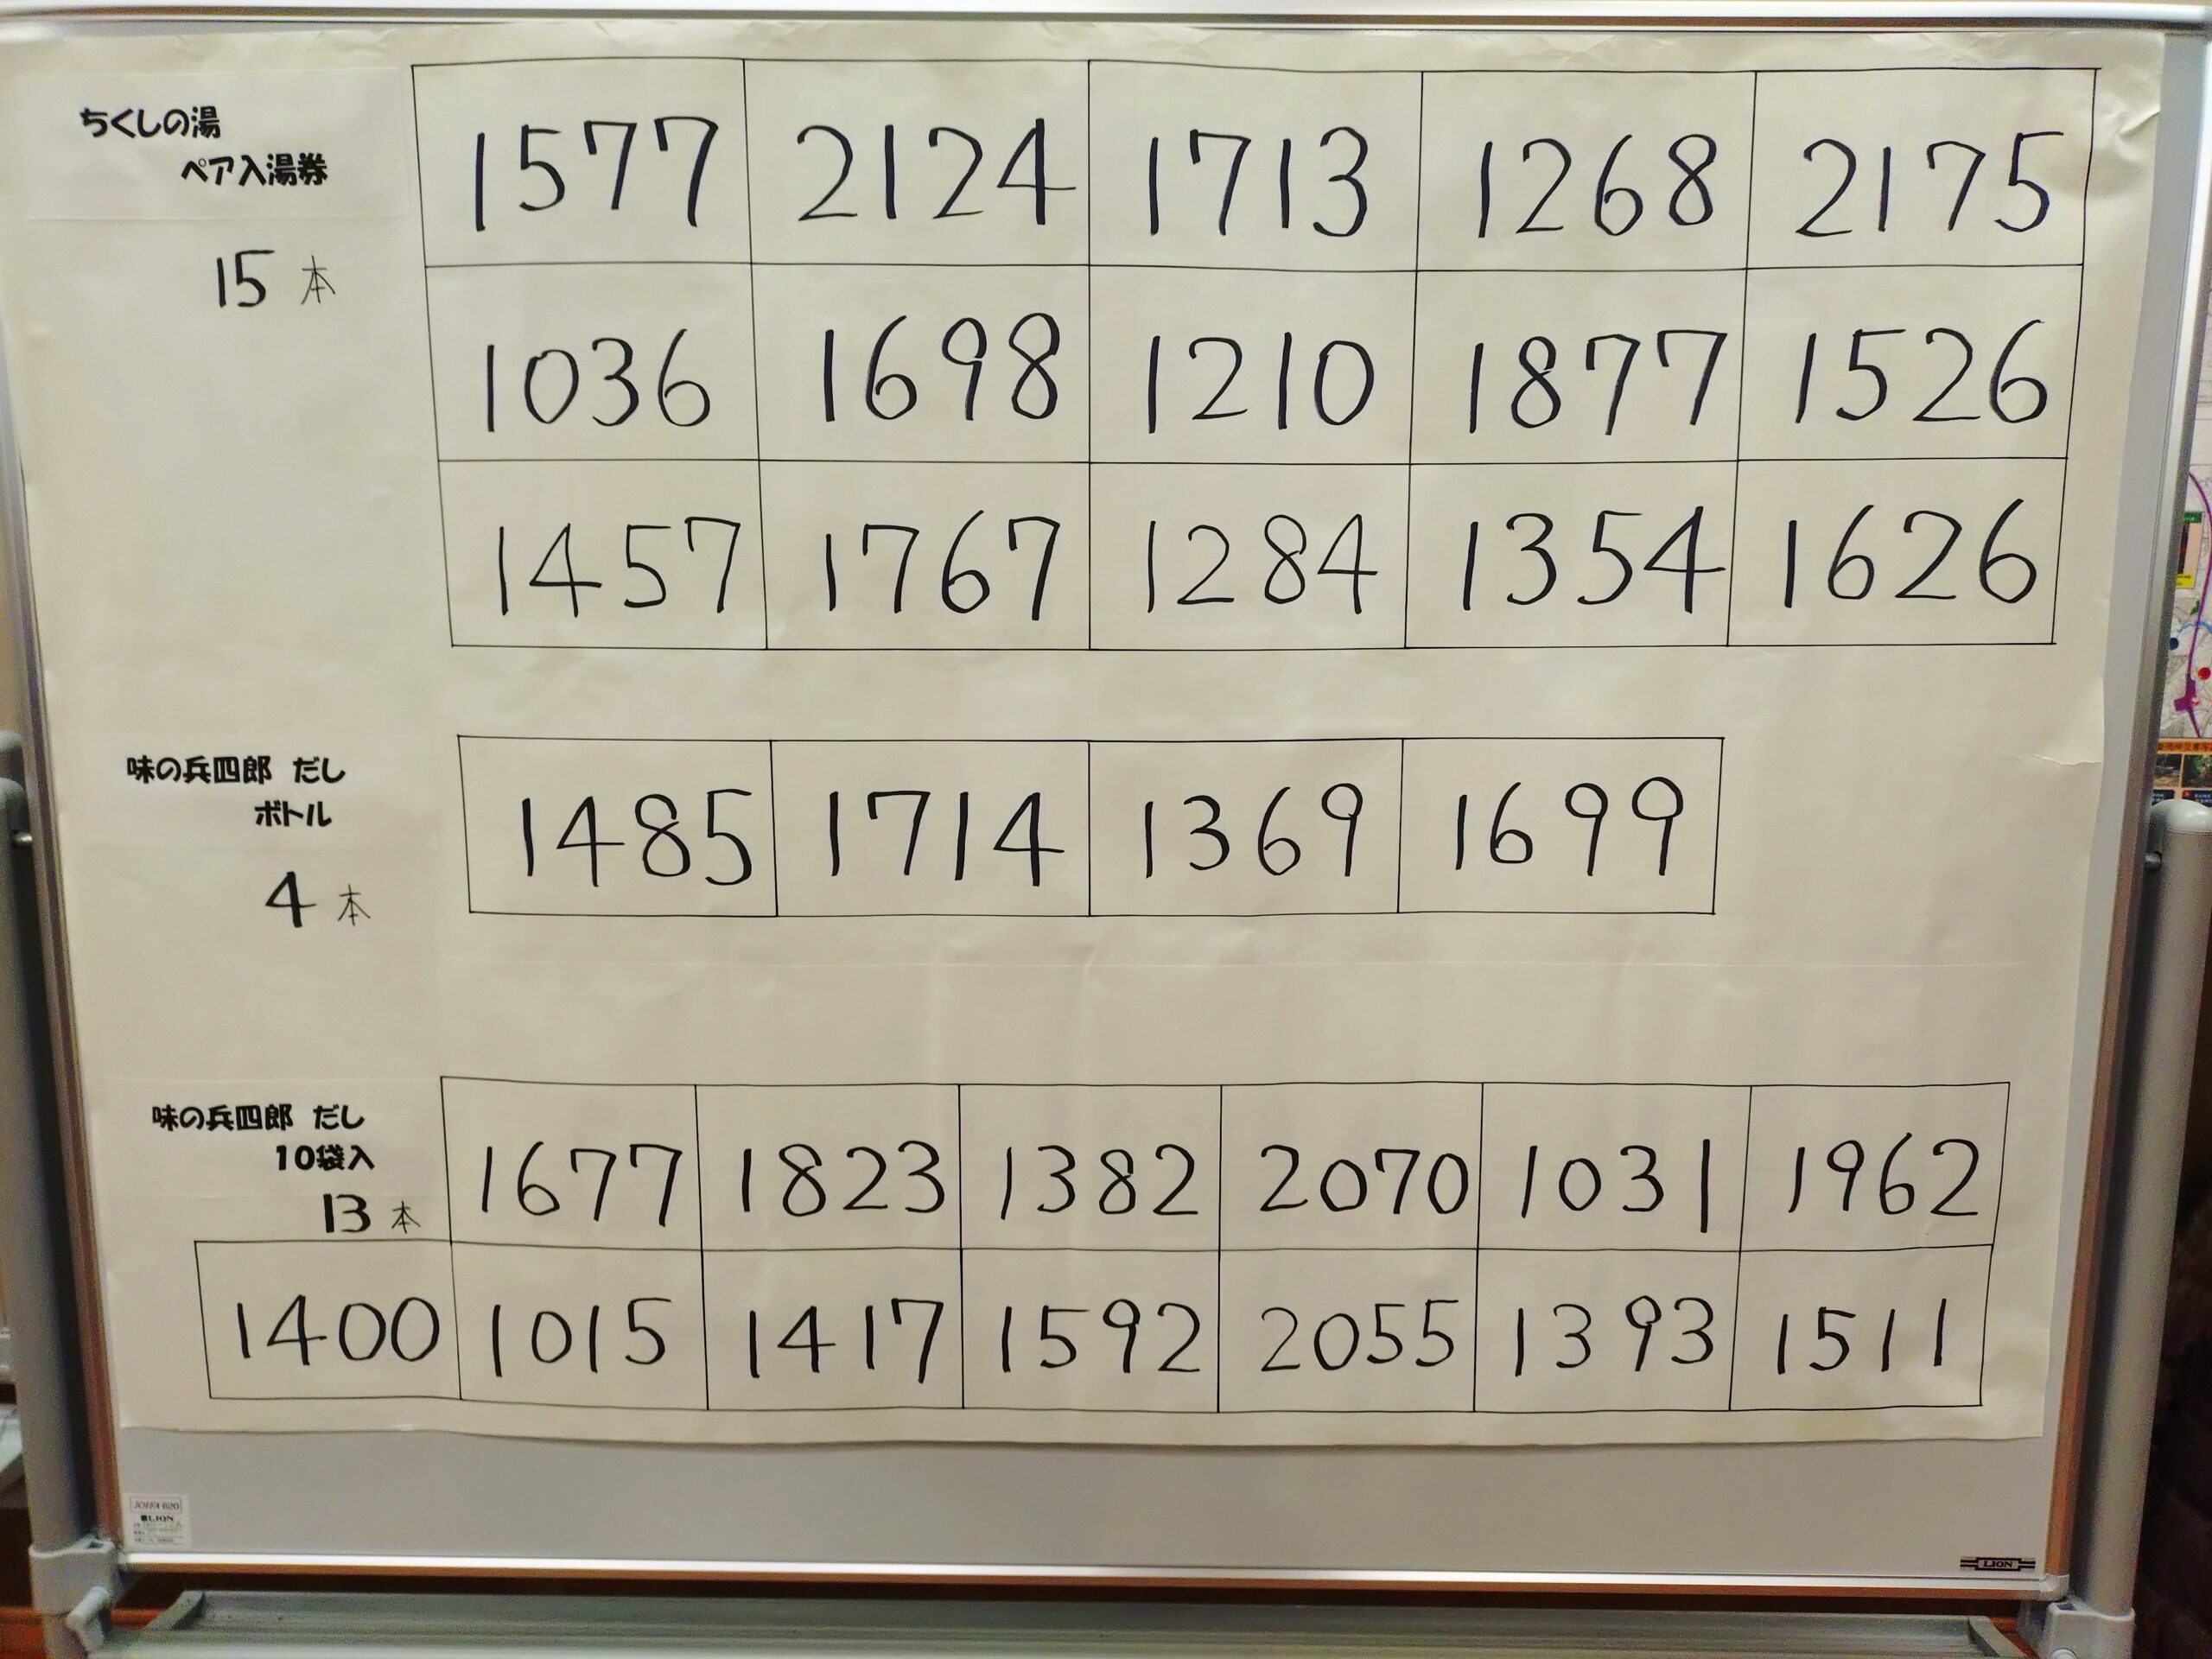 ちくしの湯
ペア入湯券
15 本
1577 2124 1713 1268 2175
1036 1698 1210 1877 1526
1457 1767 1284 1354 1626
味の兵四郎 だし
ボトル
4 本
1485 1714 1369 1699
味の兵四郎 だし
10袋入
13 本
1677 1823 1382 2070 1031 1962
1400 1015 1417 1592 2055 1393 1511
LION
LION